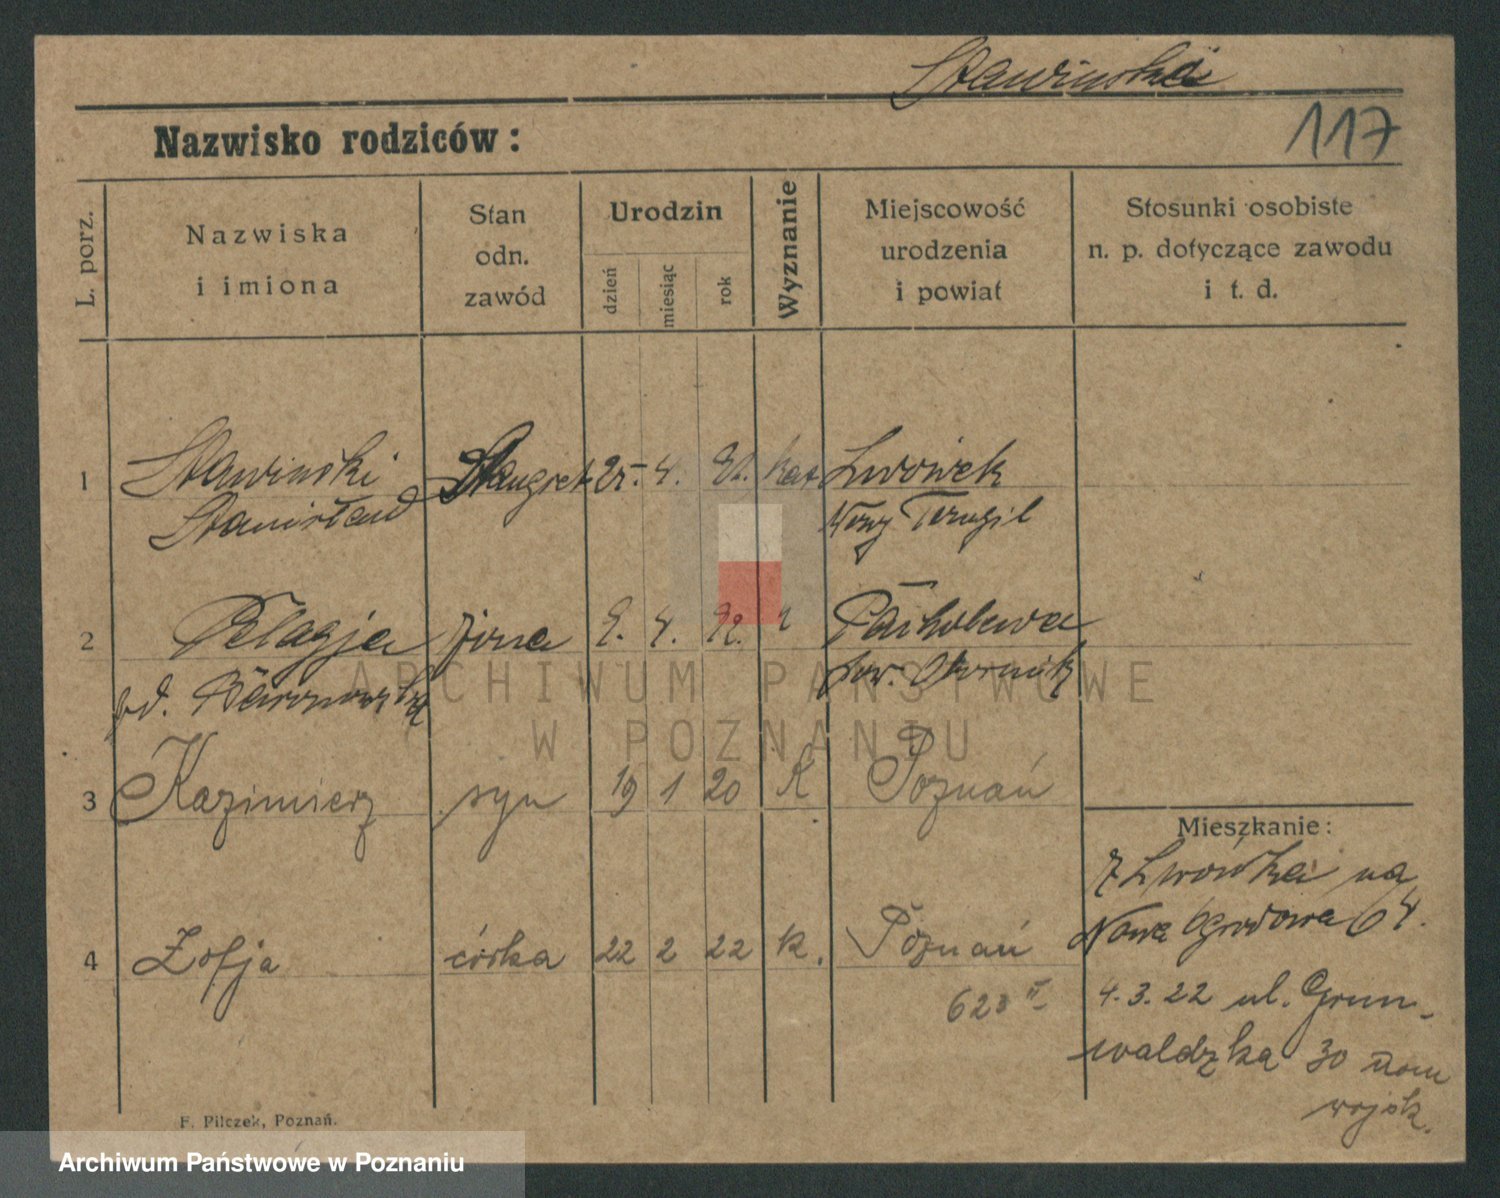 Stawiński
Nazwisko rodziców:
117
L. porz.
Nazwiska
i imiona
Stan
odn.
zawód
Urodzin
dzień
miesiąc
rok
Wyznanie
Miejscowość
urodzenia
i powiat
Stosunki osobiste
n. p. dotyczące zawodu
i t. d.
1 Stawinski Stangret 25. 4. kat Lwówek
Stanisław Nowy Tomysil
2 Pelagja żona 9. 4. 92.
pow. Obornik
3 Kazimierz syn 19 1 20 K Poznań
Mieszkanie:
z Lwówka na
Nowa Ogrodowa 64.
4 Zofja córka 22 2 22 k. Poznań
623 II
4.3.22 ul. Grun-
waldzka 30 dom
wojsk.
F. Pilczek, Poznań.
ARCHIWUM PAŃSTWOWE
W POZNANIU
Archiwum Państwowe w Poznaniu